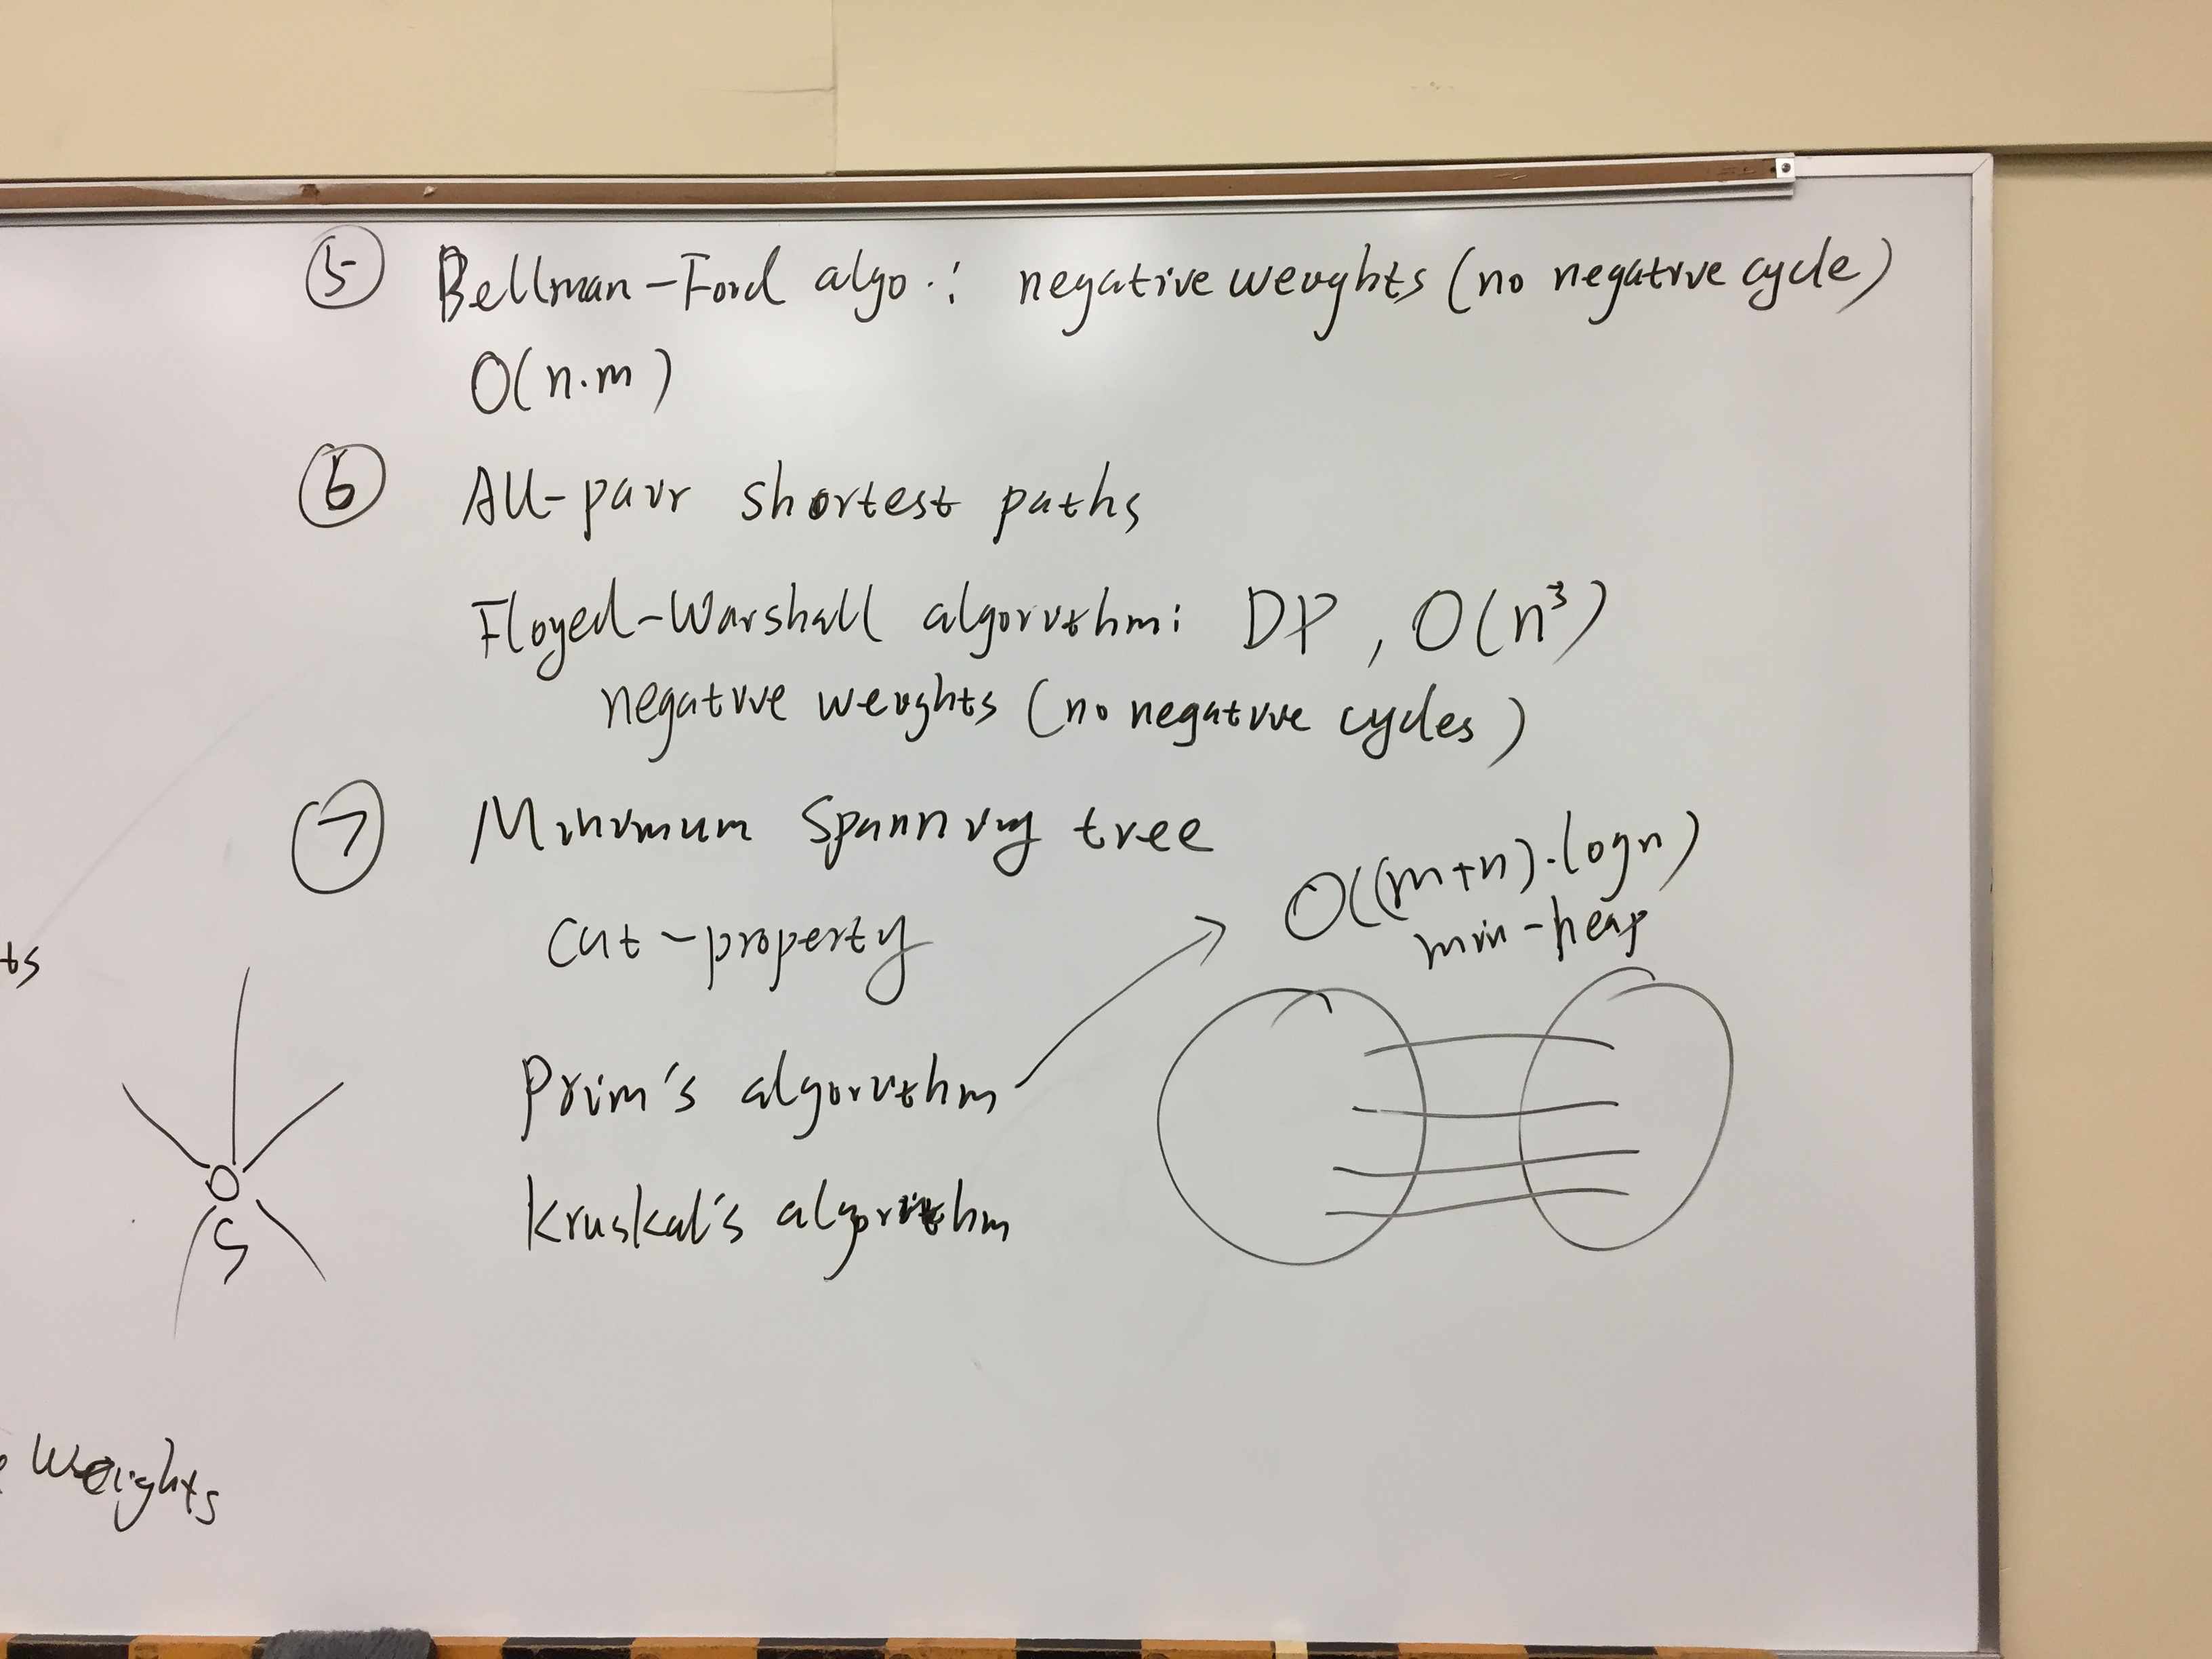 ⑤ Bellman-Ford algo.: negative weights (no negative cycle)
O(n·m)
⑥ All-pair shortest paths
Floyed-Warshall algorithm: DP, O(n³)
negative weights (no negative cycles)
⑦ Minimum Spanning tree
Cut-property
O((m+n)·logn)
min-heap
Prim's algorithm
Kruskal's algorithm
ts
S
weights